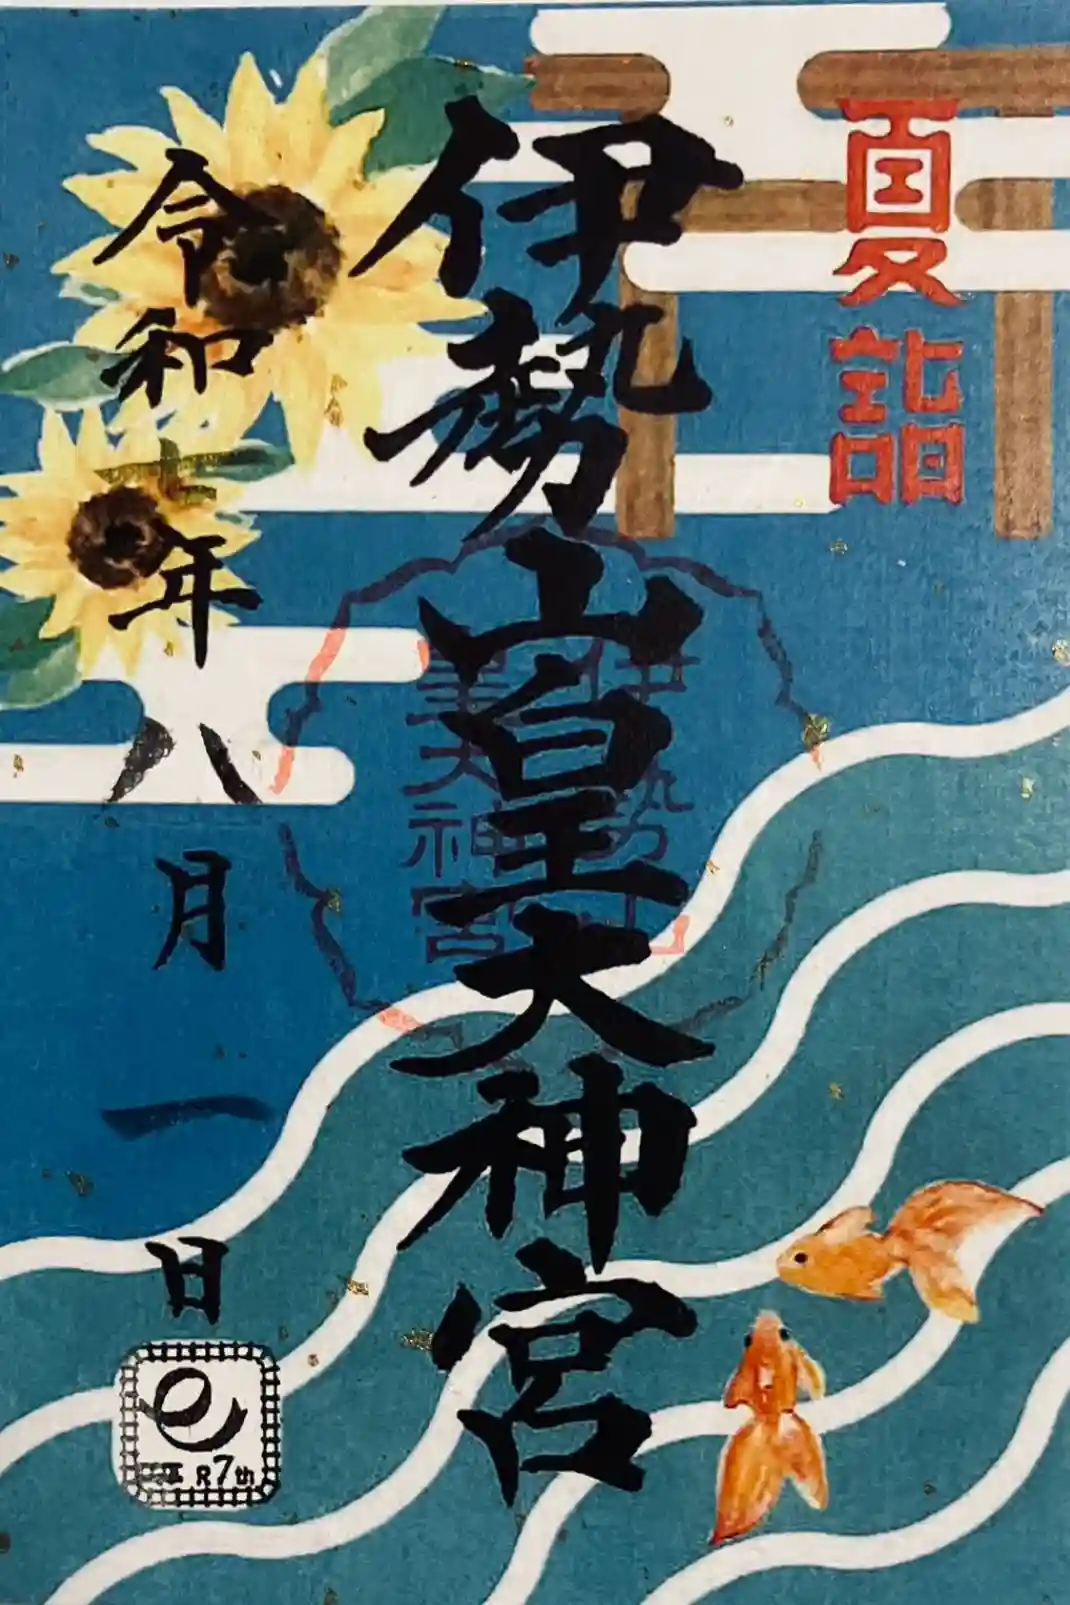 夏詣
伊勢山皇大神宮
伊勢山
皇大神宮
令和七年八月一日
R7th